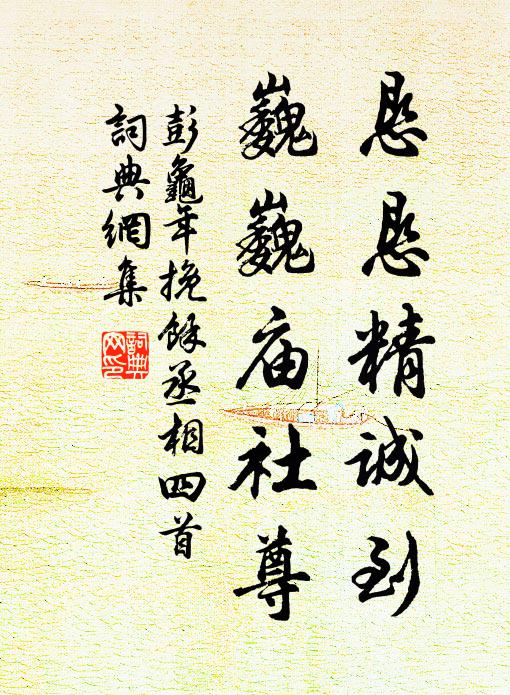 恳恳精诚到
巍巍庙社尊
彭龜年挽餘丞相四首
詞典網集
詞典
网印